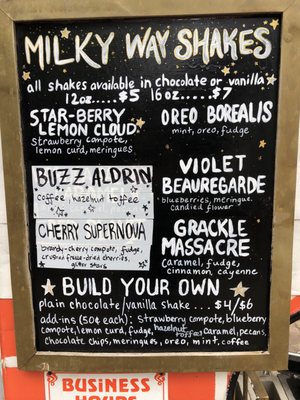 MILKY WAY SHAKES
all shakes available in chocolate or vanilla
12oz.....$5 16oz.....$7
STAR-BERRY
LEMON CLOUD
strawberry compote,
lemon curd, meringues
OREO BOREALIS
mint, oreo, fudge
BUZZ ALDRIN
coffee, hazelnut toffee
VIOLET
BEAUREGARDE
blueberries, meringue,
candied flower
CHERRY SUPERNOVA
brandy-cherry compote, fudge,
crushed freeze-dried cherries,
glitter stars
GRACKLE
MASSACRE
caramel, fudge,
cinnamon, cayenne
BUILD YOUR OWN
plain chocolate/vanilla shake... $4/$6
add-ins (50¢ each): strawberry compote, blueberry
compote, lemon curd, fudge, hazelnut toffee, caramel, pecans,
chocolate chips, meringues, oreo, mint, coffee
BUSINESS
HOURS